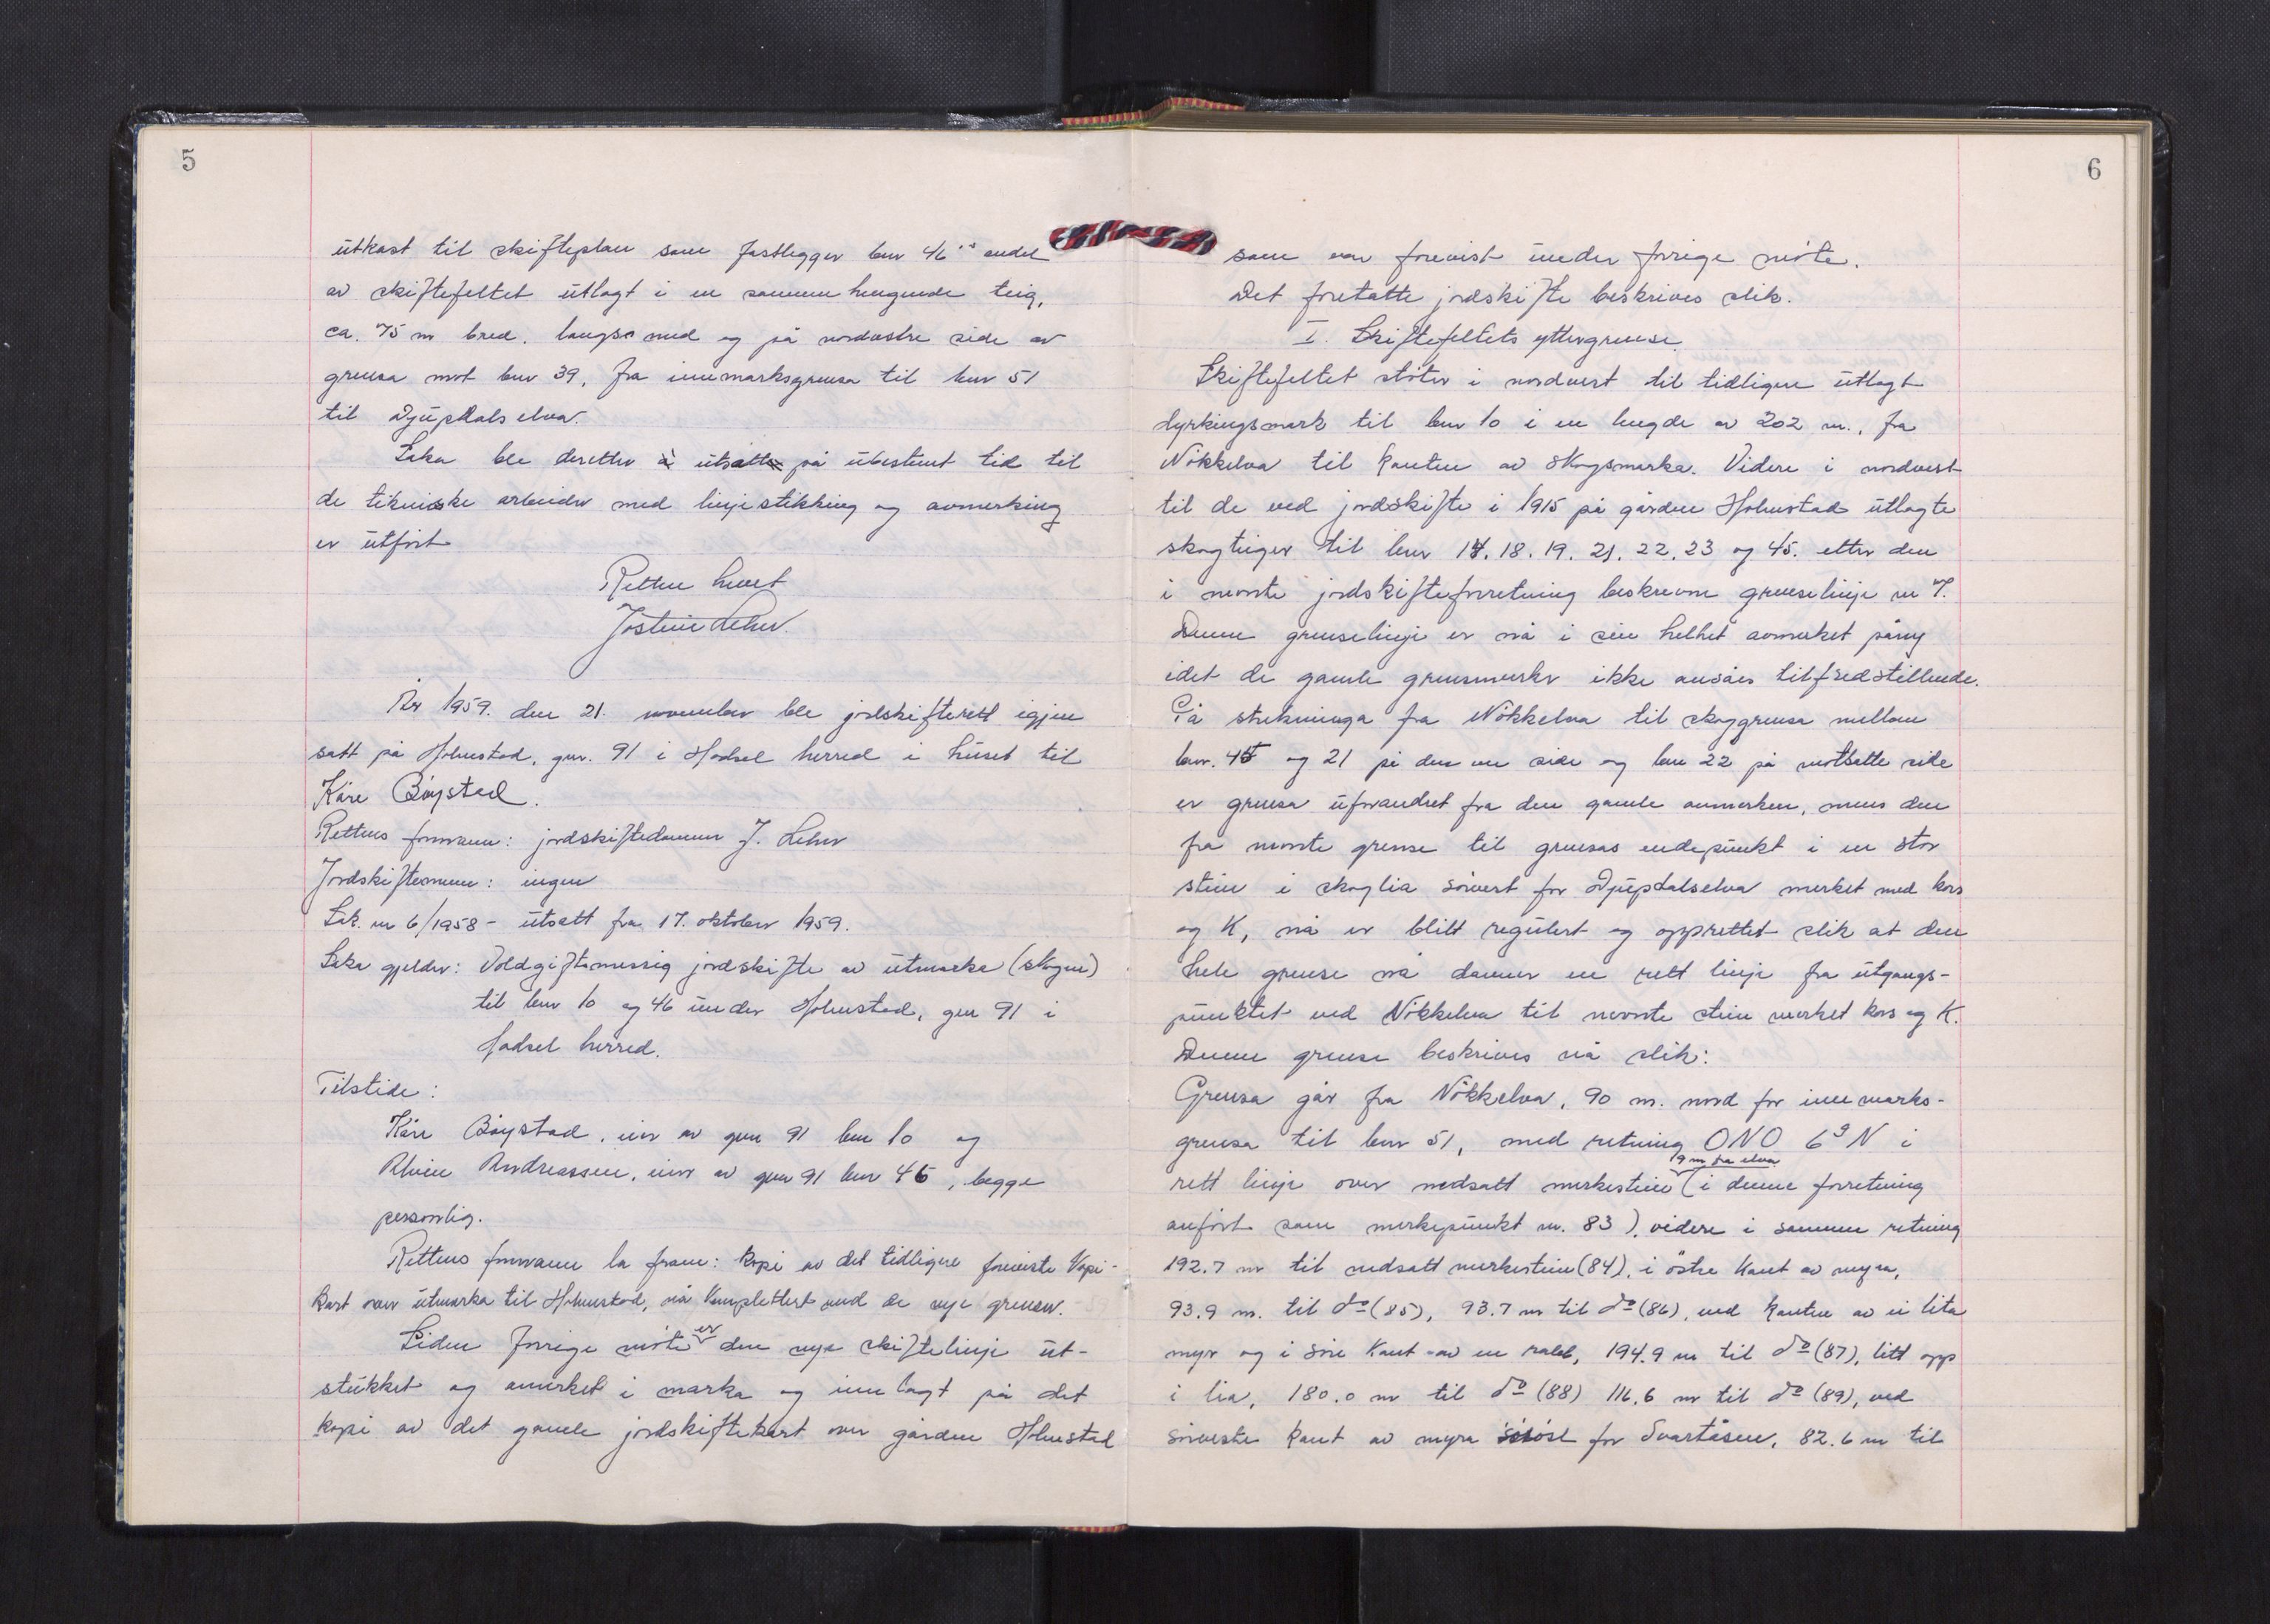 5
utkast til skifteplan som fastlegger bnr 46's andel
av skiftefeltet utlagt i en sammenhengende teig,
ca. 75 m bred. langs med og på nordøstre side av
grensa mot bnr 39, fra innmarksgrensa til bnr 51
til Djupdalselva.
Saka ble deretter å utsatt på ubestemt tid til
de tekniske arbeider med linjestikking og avmerking
er utført
Retten hevet
Jostein Lehn
År 1959. den 21. november ble jordskifterett igjen
satt på Holmstad, gnr. 91 i Hadsel herred i huset til
Kåre Bøystad.
Rettens formann: jordskiftedommer J. Lehn
Jordskiftemenn: ingen
Sak nr 6/1958 - utsatt fra 17. oktober 1959.
Saka gjelder: Voldgiftsmessig jordskifte av utmarka (skogen)
til bnr 10 og 46 under Holmstad, gnr 91 i
Hadsel herred.
Tilstede:
Kåre Bøystad, eier av gnr 91 bnr 10 og
Andreassen, eier av gnr 91 bnr 46, begge
personlig.
Rettens formann la fram: kopi av det tidligere foreviste kopi-
kart over utmarka til Holmstad, nå komplettert med de nye grenser.
Siden forrige møte er den nye skiftelinje ut-
stukket og avmerket i marka og innlagt på det
kopi av det gamle jordskiftekart over gården Holmstad
6
som var forevist under forrige møte.
Det foretatte jordskifte beskrives slik.
I. Skiftefeltets yttergrense.
Skiftefeltet støter i nordvest til tidligere utlagt
dyrkingsmark til bnr 10 i en lengde av 202 m., fra
Nökkelva til kanten av skogsmarka. Videre i nordvest
til de ved jordskifte i 1915 på gården Holmstad utlagte
skogteiger til bnr 14. 18. 19. 21. 22. 23 og 45. etter den
i nevnte jordskifteforretning beskrevne grenselinje nr 7.
Denne grenselinje er nå i sin helhet avmerket påny
idet de gamle grensemerker ikke ansåes tilfredstillende.
På strekninga fra Nökkelva til skoggrensa mellom
bnr. 45 og 21 på den ene side og bnr 22 på motsatte side
er grensa uforandret fra den gamle avmerken, mens den
fra nevnte grense til grensas endepunkt i en stor
stein i skoglia sørvest for Djupdalselva merket med kors
og K, nå er blitt regulert og opprettet slik at den
hele grense nå danner en rett linje fra utgangs-
punktet ved Nökkelva til nevnte stein merket kors og K.
Denne grense beskrives nå slik:
Grensa går fra Nökkelva, 90 m. nord for innmarks-
grensa til bnr 51, med retning ONO 6g N i
19 m fra elva
rett linje over nedsatt merkestein (i denne forretning
anført som merkepunkt nr. 83), videre i samme retning
192.7 m til nedsatt merkestein (84), i östre kant av myra,
93.9 m. til do (85), 93.7 m til do (86), ved kanten av ei lita
myr og i søre kant av en rabb, 194.9 m til do (87), litt opp
i lia, 180.0 m til do (88) 116.6 m til do (89), ved
sørvestre kant av myra sørøst for Svartåsen, 82.6 m til